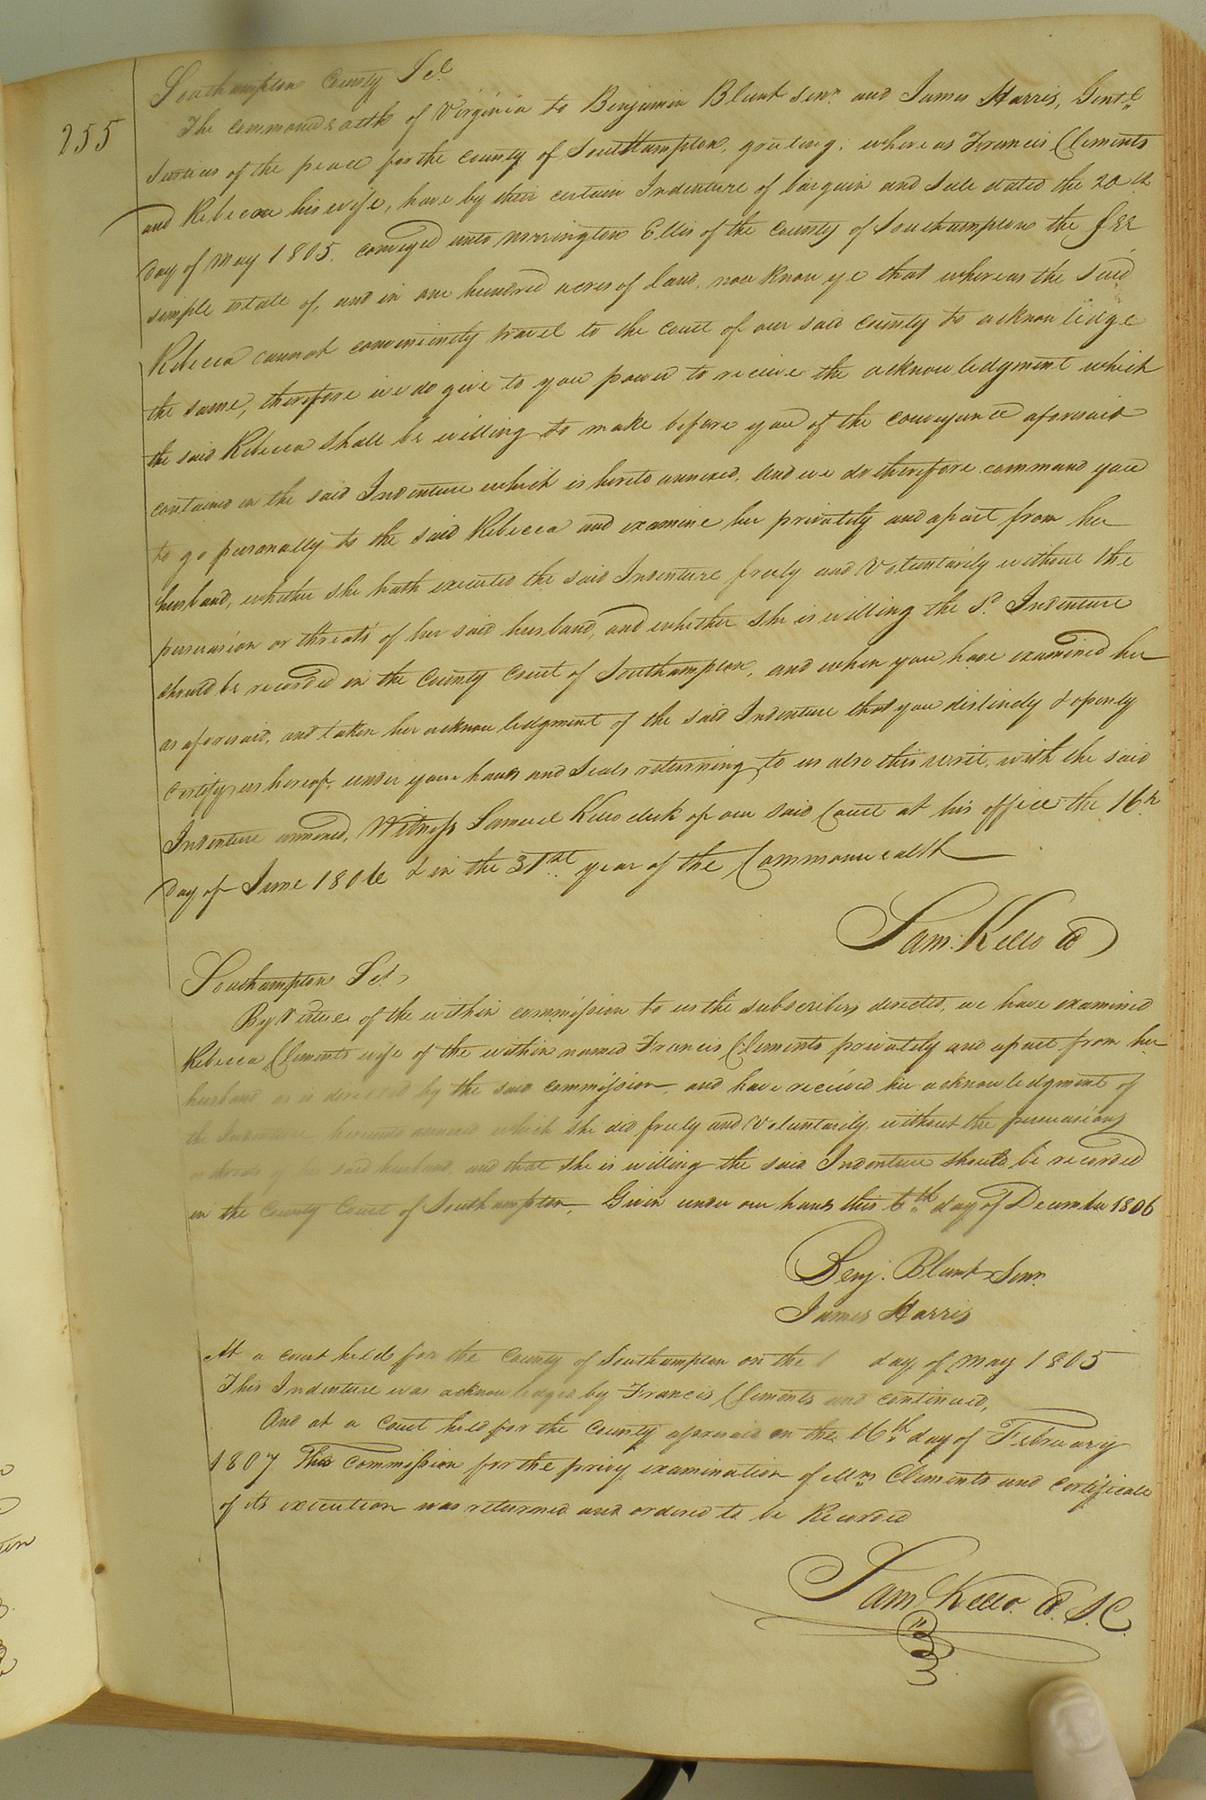 255
Southampton County Sct
The commonwealth of Virginia to Benjamin Blunt Senr. and James Harris, Gentl.
Justices of the peace for the county of Southampton, greeting, whereas Francis Clements
and Rebecca his wife, have by their certain Indenture of bargain and sale dated the 20th
day of May 1805. conveyed unto Ellis of the County of Southampton the fee
simple estate of, and in one hundred acres of land, now know ye that whereas the said
Rebecca cannot conveniently travel to the court of our said county to acknowledge
the same, therefore we do give to you power to receive the acknowledgment which
the said Rebecca shall be willing to make before you of the conveyance aforesaid
contained in the said Indenture which is hereto annexed, and we do therefore command you
to go personally to the said Rebecca and examine her privately and apart from her
husband, whether she hath executed the said Indenture freely and Voluntarily without the
persuasion or threats of her said husband, and whether she is willing the Sd. Indenture
should be recorded in the County Court of Southampton, and when you have examined her
as aforesaid, and taken her acknowledgment of the said Indenture that you distinctly & openly
certify us hereof, under your hands and Seals returning to us also this writ, with the said
Indenture annexed, Witness Samuel Kello clerk of our said Court at his office the 16th
day of June 1806 & in the 31st year of the Commonwealth
Sam: Kello
Southampton Sct,
By Virtue of the within commission to us the subscribers directed, we have examined
Rebecca Clements wife of the within named Francis Clements privately and apart from her
husband as is directed by the said commission, and have received her acknowledgment of
the Indenture hereunto annexed which she did freely and Voluntarily, without the persuasions
said husband, and that she is willing the said Indenture should be recorded
in the County Court of Southampton, Given under our hands this 6th day of December 1806
Benj. Blunt Senr.
James Harris
At a court held for the County of Southampton on the day of May 1805
This Indenture was acknowledged by Francis Clements and continued,
And at a Court held for the County aforesaid on the 16th day of February
1807 This Commission for the privy examination of Mrs Clements and certificate
of its execution was returned and ordered to be Recorded
Sam Kello. S.C.